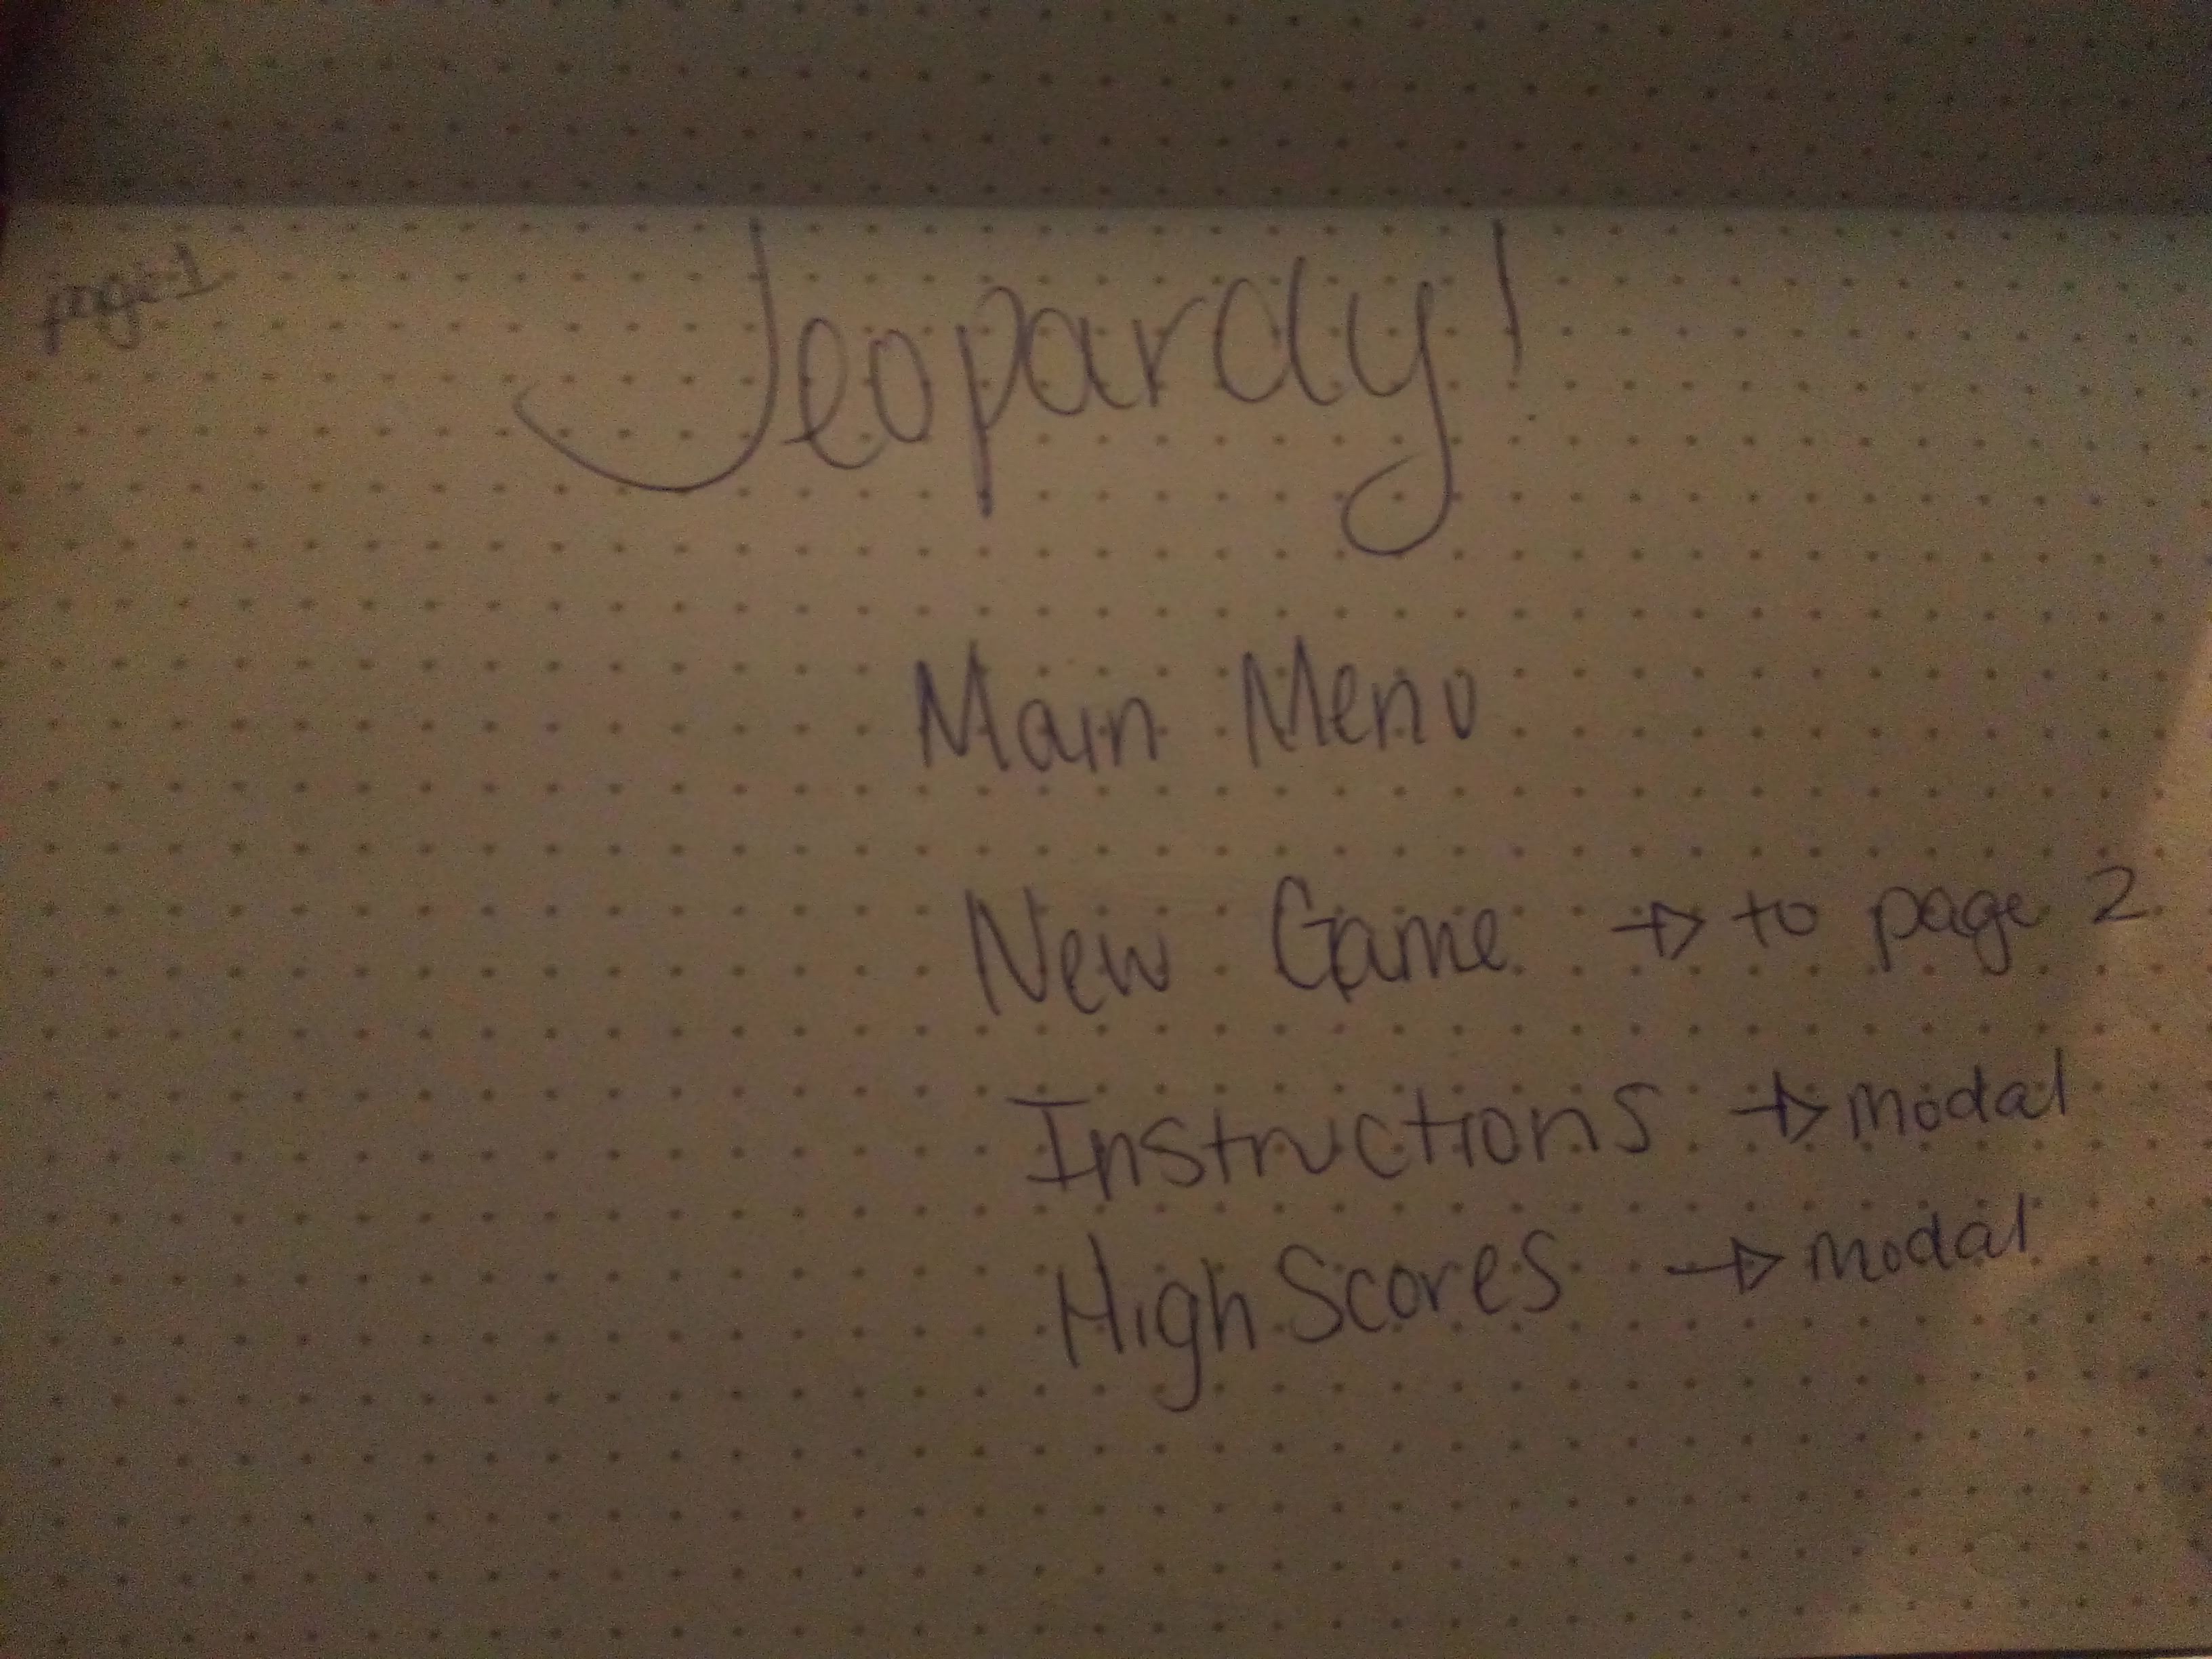 page 1
Jeopardy!
Main Menu
New Game → to page 2
Instructions → modal
High Scores → modal